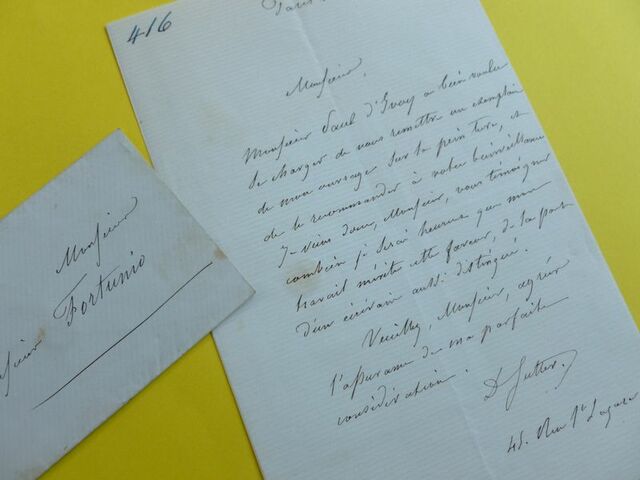 416
Paris
Monsieur,
Monsieur Paul d'Ivoy a bien voulu
se charger de vous remettre un exemplaire
de mon ouvrage sur la peinture, et
de le recommander à votre bienveillance
Je viens donc, Monsieur, vous témoigner
combien je serai heureux que mon
travail mérite cette faveur, de la part
d'un écrivain aussi distingué.
Veuillez, Monsieur, agréer
l'assurance de ma parfaite
considération.
D Sutter.
45. Rue St Lazare
Monsieur
Monsieur Fortunio